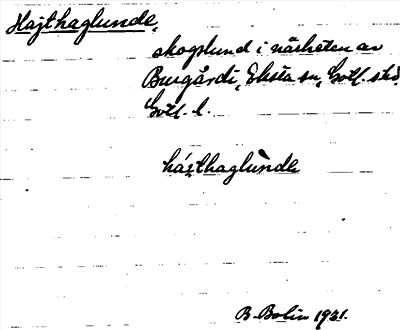 Hajthaglunde,
skogslund i närheten av
Burgårds, Eksta sn, Gotl. sbd.
Gotl. l.
háɪthaglùnde
B. Bolin 1921.